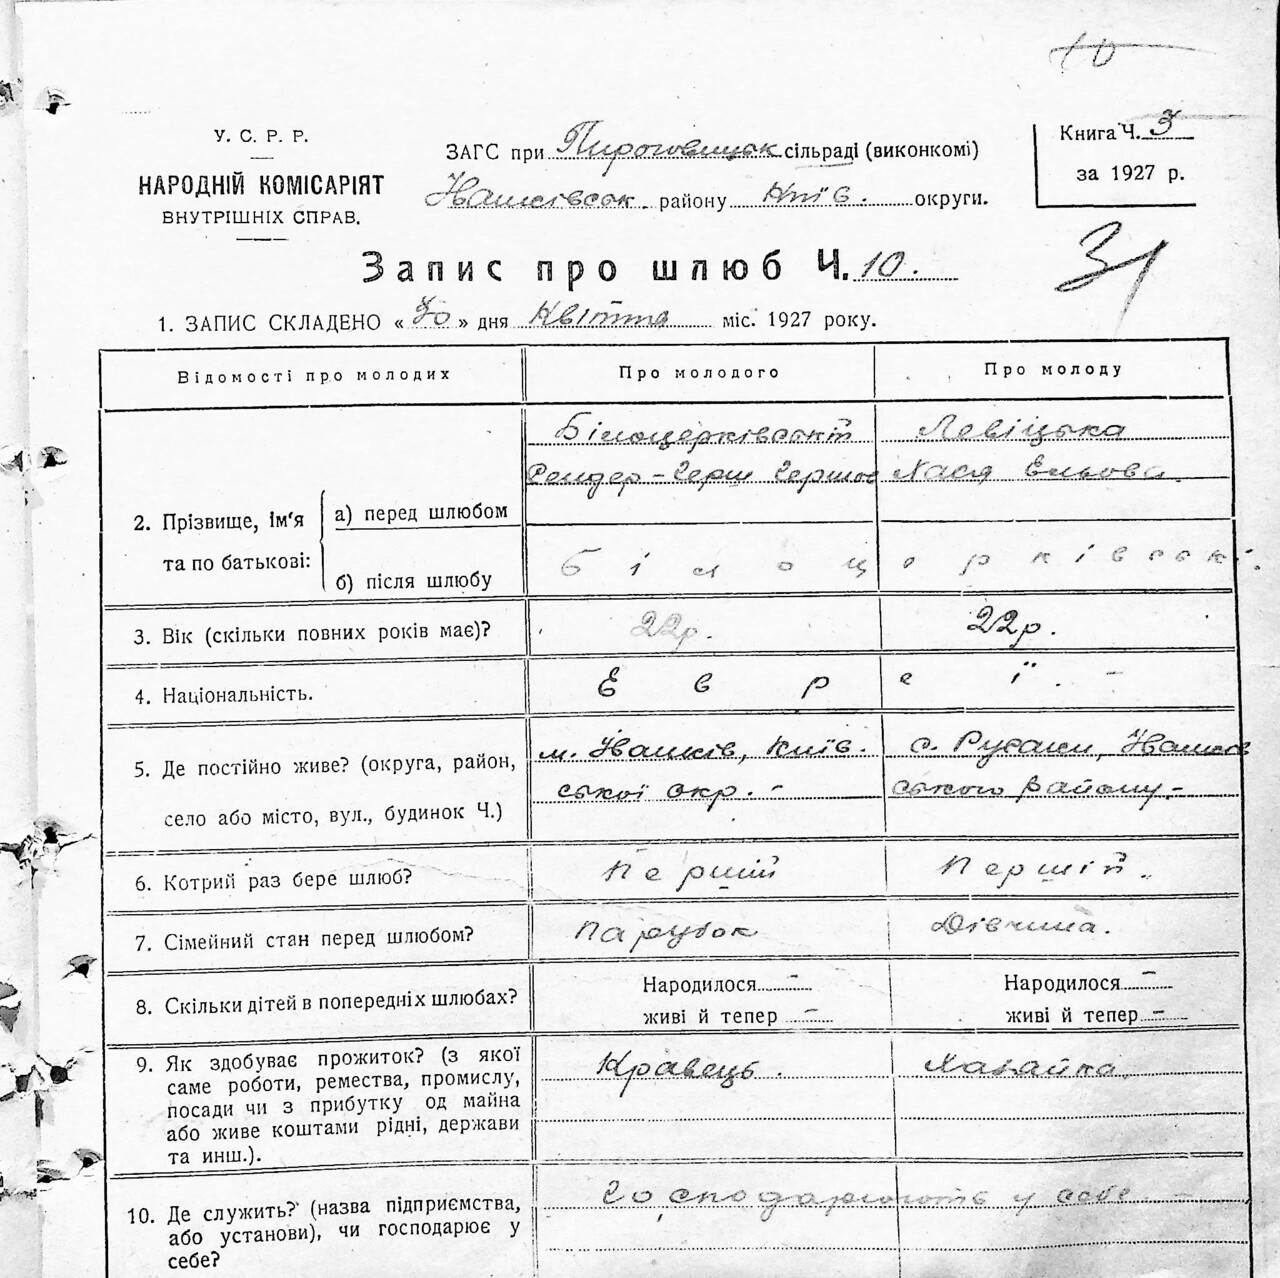 10
У. С. Р. Р.
НАРОДНІЙ КОМІСАРІЯТ
ВНУТРІШНІХ СПРАВ.
ЗАГС при Пироговицьк сільраді (виконкомі)
Івашківськ. району Київ. округи.
Книга Ч. 3
за 1927 р.
31
Запис про шлюб Ч. 10.
1. ЗАПИС СКЛАДЕНО « » дня Квітня міс. 1927 року.
Відомості про молодих
Про молодого
Про молоду
2. Прізвище, ім'я та по батькові:
а) перед шлюбом
Білоцерківськіт
Герш Гершов
Левіцька
Хася Ельова.
б) після шлюбу
білоцерківські.
3. Вік (скільки повних років має)?
22р.
22р.
4. Національність.
Евреї. -
5. Де постійно живе? (округа, район,
село або місто, вул., будинок Ч.)
м. Івашків, Київ.
ської окр. -
с. Русаки, Івашків
ського району. -
6. Котрий раз бере шлюб?
Перший
Першій.
7. Сімейний стан перед шлюбом?
Парубок
Дівчина.
8. Скільки дітей в попередніх шлюбах?
Народилося -
живі й тепер -
Народилося -
живі й тепер -
9. Як здобуває прожиток? (з якої
саме роботи, ремества, промислу,
посади чи з прибутку од майна
або живе коштами рідні, держави
та инш.).
Кравець.
Хазайка.
10. Де служить? (назва підприємства,
або установи), чи господарює у
себе?
Господарюють у себе -